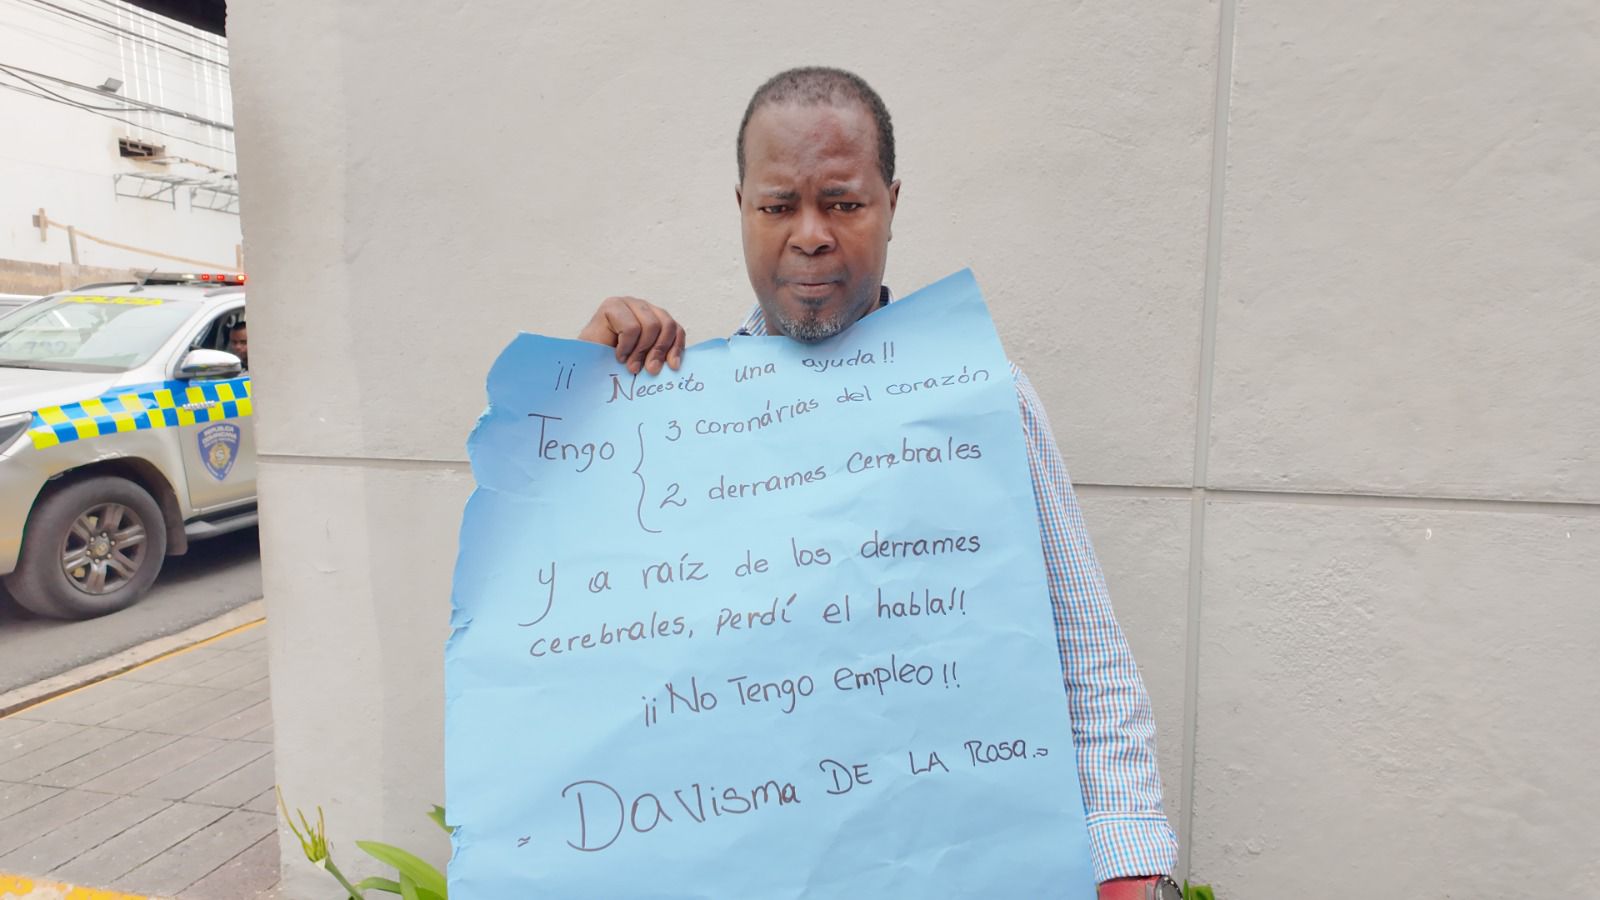 ¡¡ Necesito una ayuda!!
Tengo { 3 coronárias del corazón
2 derrames cerebrales
y a raíz de los derrames
cerebrales, perdí el habla!!
¡¡No Tengo empleo!!
= DaVisma DE LA Rosa.=
POLICIA
REPUBLICA
DOMINICANA